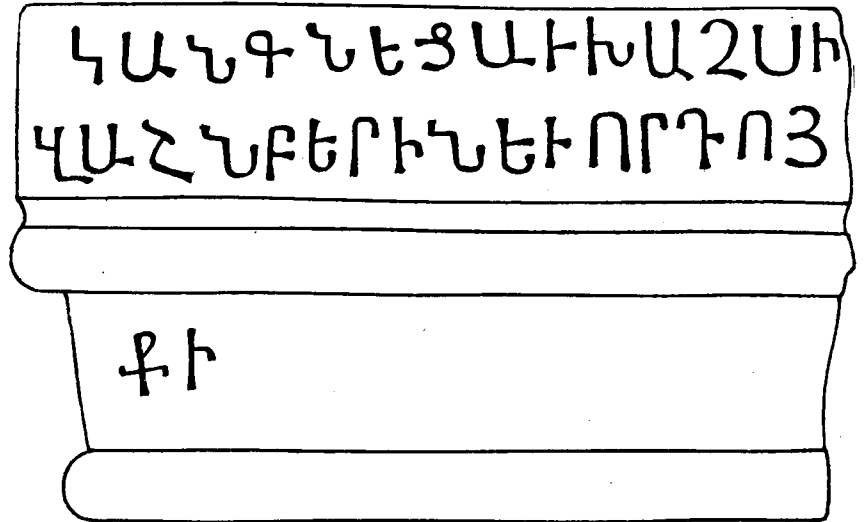 ԿԱՆԳՆԵՑԱՒԽԱՉՍԻ
ՎԱՀՆԲԵՐԻՆԵՒՈՐԴՈՅ
ՔԻ